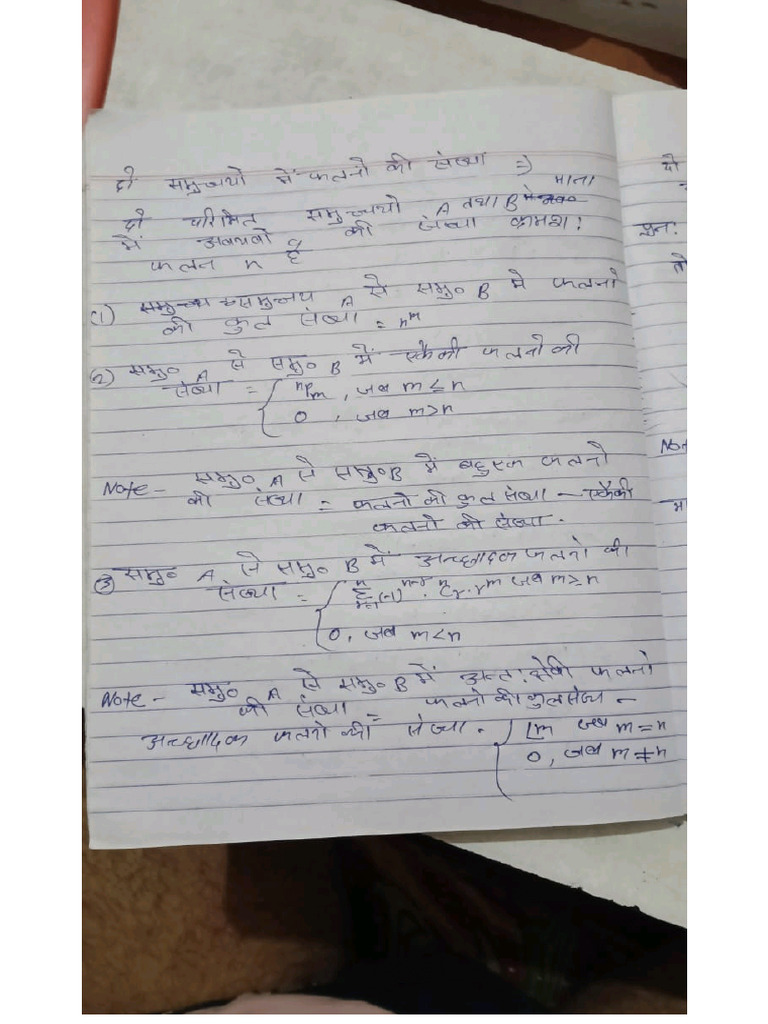 दो समुच्चयो में फलनो की संख्या ⇒
माना
दो परिमित समुच्चयो A तथा B
में अवयवो की संख्या क्रमशः
फलन n है
(1) समुच्चय A से समु० B मे फलनो
की कुल संख्या = n^m
(2) समु० A से समु० B में एकैकी फलनो की
संख्या = { nPm , जब m ≤ n
0 , जब m>n
Note - समु० A से समु० B में बहुएक फलनो
की संख्या = फलनो की कुल संख्या - एकैकी
फलनो की संख्या .
(3) समु० A से समु० B में आच्छादक फलनो की
संख्या = { Σ_{r=1}^{n} (-1)^{n-r} . nCr . r^m जब m≥n
0, जब m<n
Note - समु० A से समु० B में अन्तः क्षेपी फलनो
की संख्या = फलनो की कुल संख्या -
आच्छादक फलनो की संख्या . { ⌊m जब m = n
0, जब m ≠ n
दो
पुनः
तो
Not